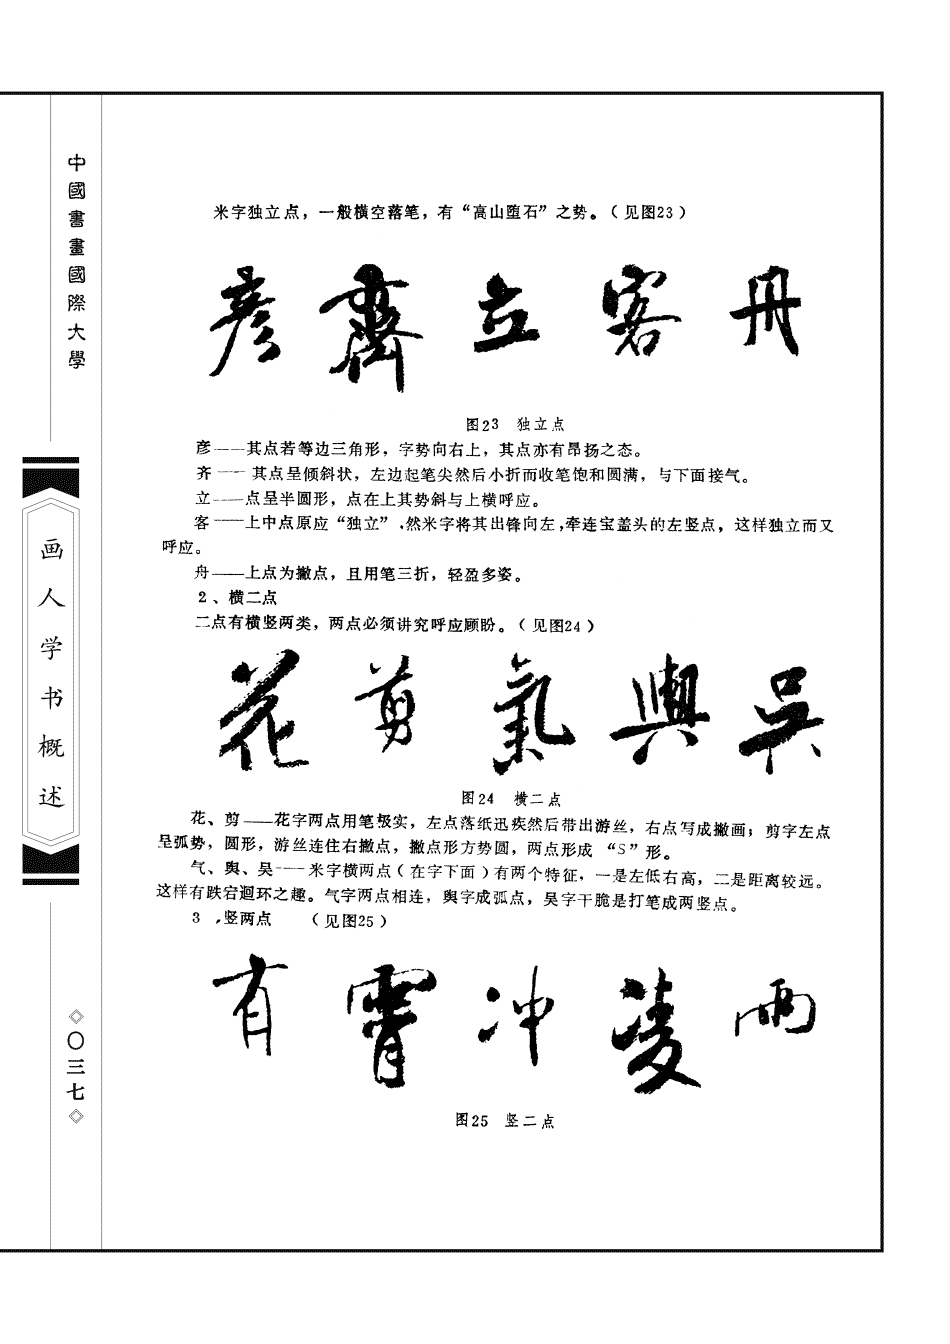 中國書畫國際大學
画人学书概述
◇〇三七◇
米字独立点，一般横空落笔，有“高山堕石”之势。(见图23)
彦 齊 立 客 舟
图23 独立点
彦——其点若等边三角形，字势向右上，其点亦有昂扬之态。
齐——其点呈倾斜状，左边起笔尖然后小折而收笔饱和圆满，与下面接气。
立——点呈半圆形，点在上其势斜与上横呼应。
客——上中点原应“独立”，然米字将其出锋向左，牵连宝盖头的左竖点，这样独立而又
呼应。
舟——上点为撇点，且用笔三折，轻盈多姿。
2、横二点
二点有横竖两类，两点必须讲究呼应顾盼。(见图24)
花 剪 氣 輿 吴
图24 横二点
花、剪——花字两点用笔极实，左点落纸迅疾然后带出游丝，右点写成撇画；剪字左点
呈弧势，圆形，游丝连住右撇点，撇点形方势圆，两点形成“S”形。
气、舆、吴——米字横两点(在字下面)有两个特征，一是左低右高，二是距离较远。
这样有跌宕迴环之趣。气字两点相连，舆字成弧点，吴字干脆是打笔成两竖点。
3，竖两点 (见图25)
有 霄 冲 凌 雨
图25 竖二点